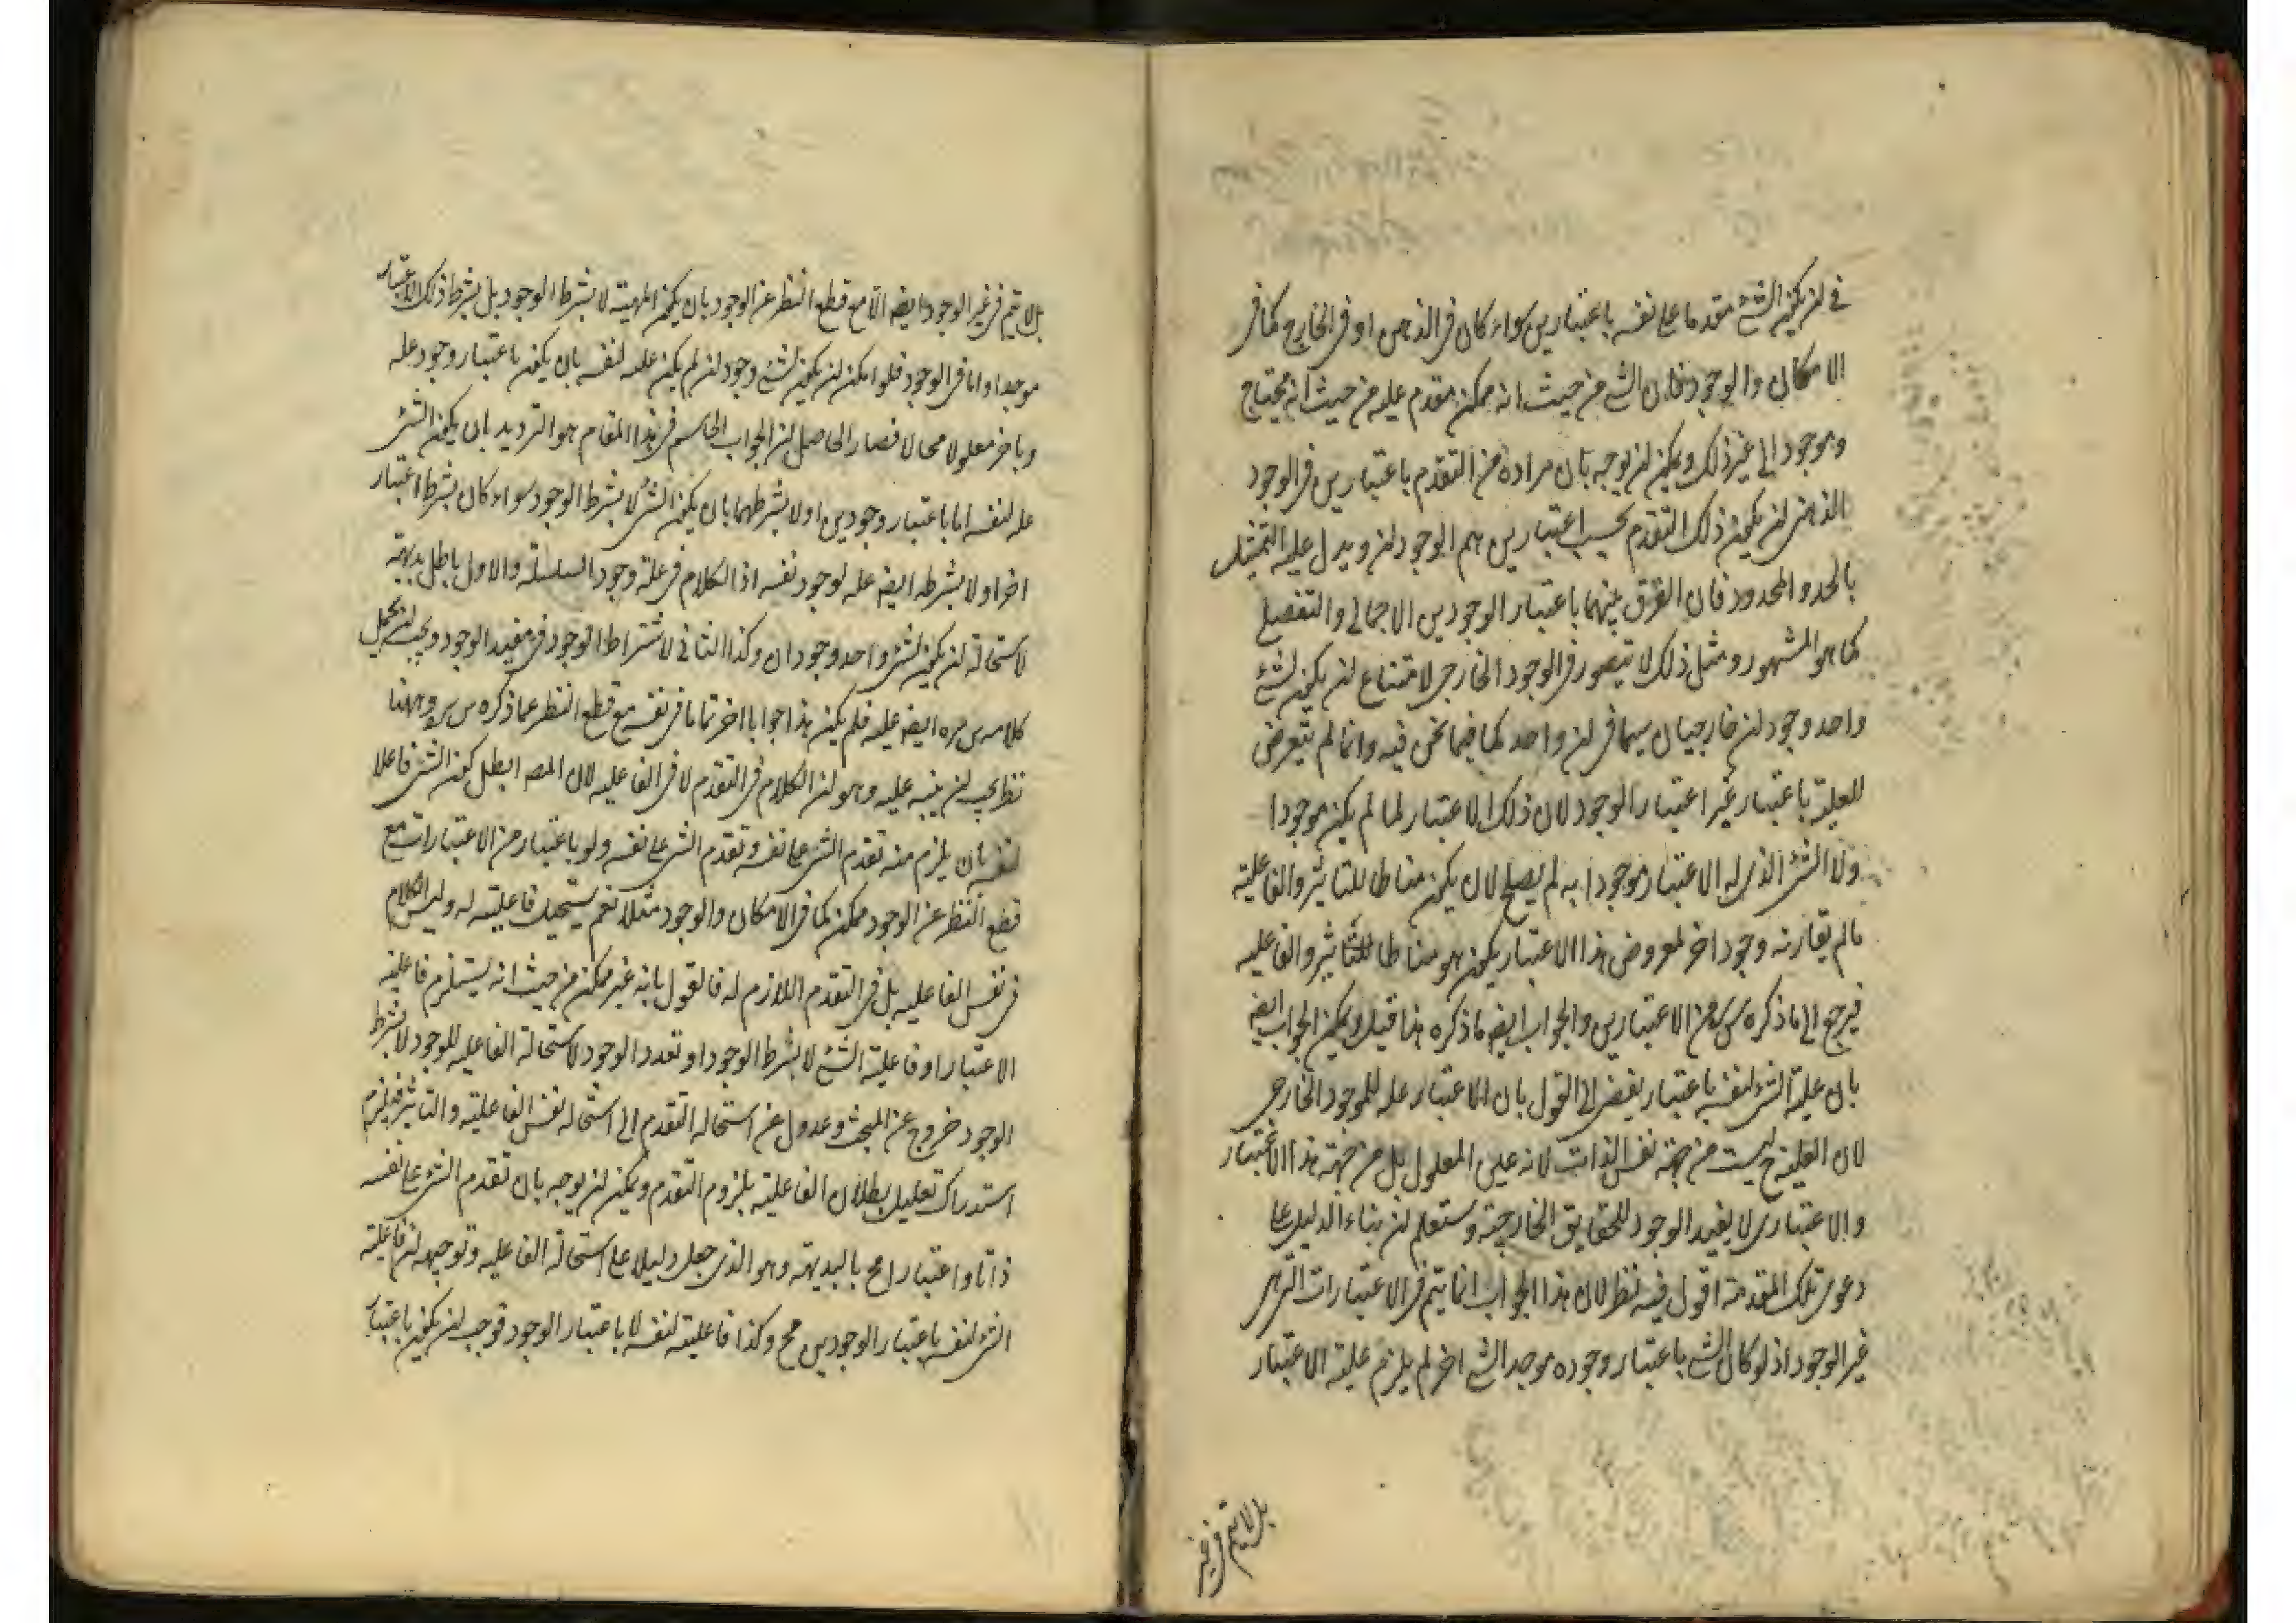 في ان يكون الشئ مقدما على نفسه باعتبارين سواء كان في الذهن او في الخارج كما في
الامكان والوجود فان الشئ من حيث انه ممكن مقدم عليه من حيث انه محتاج
وموجود الى غير ذلك ويمكن ان يوجه بان مراده من التقدم باعتبارين في الوجود
الذهني ان يكون ذلك التقدم بحسب اعتبارين هم الوجودان ويدل عليه التمثيل
بالحد والمحدود فان الفرق بينهما باعتبار الوجودين الاجمالي والتفصيلي
كما هو المشهور ومثل ذلك لا يتصور في الوجود الخارجي لامتناع ان يكون لشئ
واحد وجودان خارجيان سيما في ان واحد كما فيما نحن فيه وانما لم يتعرض
للعلية باعتبار غير اعتبار الوجود لان ذلك الاعتبار لما لم يكن موجودا
ولا الشئ الذي له الاعتبار موجودا به لم يصلح لان يكون مناطا للتاثير والفاعلية
ما لم يقارنه وجود اخر لمعروض هذا الاعتبار يكون هو مناطا للتاثير والفاعليه
فيرجع الى ما ذكره س سره من الاعتبارين والجواب ايضا ما ذكره هذا قيل ويمكن الجواب ايضا
بان علية الشئ لنفسه باعتبار يفضي الى القول بان الاعتبار علة للموجود الخارجي
لان العلية ح ليست من جهة نفس الذات لانه عين المعلول بل من جهة هذا الاعتبار
والاعتباري لا يفيد الوجود للحقايق الخارجية وستعلم ان بناء الدليل على
دعوى تلك المقدمة اقول فيه نظر لان هذا الجواب انما يتم في الاعتبارات التي هي
غير الوجود اذ لو كان الشئ باعتبار وجوده موجد الشئ اخر لم يلزم علية الاعتبار
بل لا يتم في غير
بل لا يتم في غير الوجود ايضا الا مع قطع النظر عن الوجود بان يكون المهية لا بشرط الوجود بل بشرط ذلك الاعتبار
موجدا واما في الوجود فلو امكن ان يكون لشئ وجودان لم يكن علة لنفسه بان يكون باعتبار وجود علة
وباخر معلولا محالا فصار الحاصل ان الجواب الحاسم في هذا المقام هو الترديد بان يكون الشئ
علة لنفسه اما باعتبار وجودين او لا بشرطهما بان يكون الشئ لا بشرط الوجود سواء كان بشرط اعتبار
اخر او لا بشرطه ايضا علة لوجود نفسه اذ الكلام في علة وجود السلسلة والاول باطل بديهة
لاستحالة ان يكون لشئ واحد وجودان وكذا الثاني لاشتراط الوجود في مفيد الوجود ويجب ان يحمل
كلامه س سره ايضا عليه فلم يكن هذا جوابا اخر تماما في نفسه مع قطع النظر عما ذكره س سره وههنا
نظر يجب ان ينبه عليه وهو ان الكلام في التقدم لا في الفاعليه لان المصـ ابطل كون الشئ فاعلا
لنفسه بان يلزم منه تقدم الشئ على نفسه وتقدم الشئ على نفسه ولو باعتبار من الاعتبارات مع
قطع النظر عن الوجود ممكن كما في الامكان والوجود مثلا نعم يستحيل فاعليته له وليس الكلام
في نفس الفاعليه بل في التقدم اللازم له فالقول بانه غير ممكن من حيث انه يستلزم فاعلية
الاعتبار او فاعلية الشئ لا بشرط الوجود او تعدد الوجود لاستحالة الفاعليه للوجود لا بشرط
الوجود خروج عن المبحث وعدول عن استحالة التقدم الى استحالة نفس الفاعلية والتاثير فيلزم
استدراك تعليل بطلان الفاعلية بلزوم التقدم ويمكن ان يوجه بان تقدم الشئ على نفسه
ذاتا واعتبارا مح بالبديهة وهو الذي جعل دليلا على استحالة الفاعليه وتوجيهه ان فاعلية
الشئ لنفسه باعتبار الوجودين مح وكذا فاعلية لنفسه لا باعتبار الوجود فوجب ان يكون باعتبار